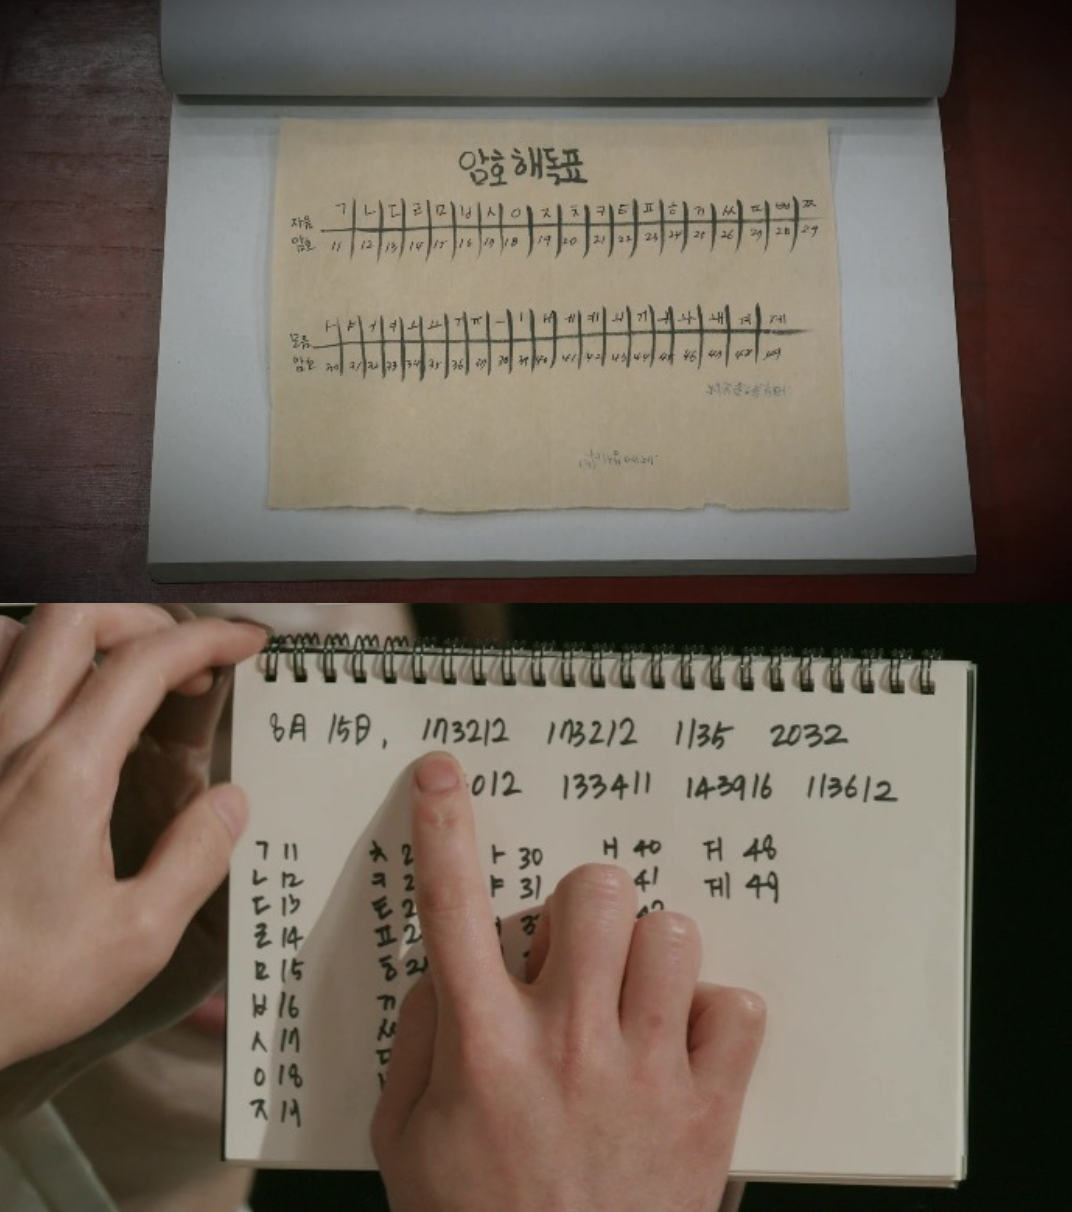 암호해독표
자음 ㄱ ㄴ ㄷ ㄹ ㅁ ㅂ ㅅ ㅇ ㅈ ㅊ ㅋ ㅌ ㅍ ㅎ ㄲ ㅆ ㄸ ㅃ ㅉ
암호 11 12 13 14 15 16 17 18 19 20 21 22 23 24 25 26 27 28 29
모음 ㅏ ㅑ ㅓ ㅕ ㅗ
암호 30 31 32 33 34 35 36 37 38 39 40 41 42 43 44 45 46 47 48 49
8月 15日, 173212 173212 1135 2032
012 133411 143916 113612
ㄱ 11 ㅊ 2 ㅏ 30 ㅐ 40 ㅝ 48
ㄴ 12 ㅋ 2 ㅑ 31 41 ㅞ 49
ㄷ 13 ㅌ 2
ㄹ 14 ㅍ 2
ㅁ 15 ㅎ 2
ㅂ 16 ㄲ
ㅅ 17 ㅆ
ㅇ 18
ㅈ 19